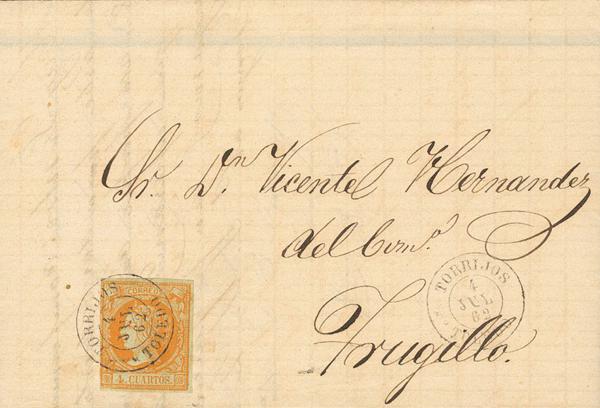 Sr. Dn. Vicente Hernandez
del Com.º
Trugillo.
TORRIJOS
4
JUL
62
TORRIJOS
4
JUL
62
TOLEDO
CORREOS
4 CUARTOS.